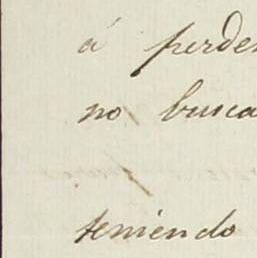 á perder
no busca
teniendo